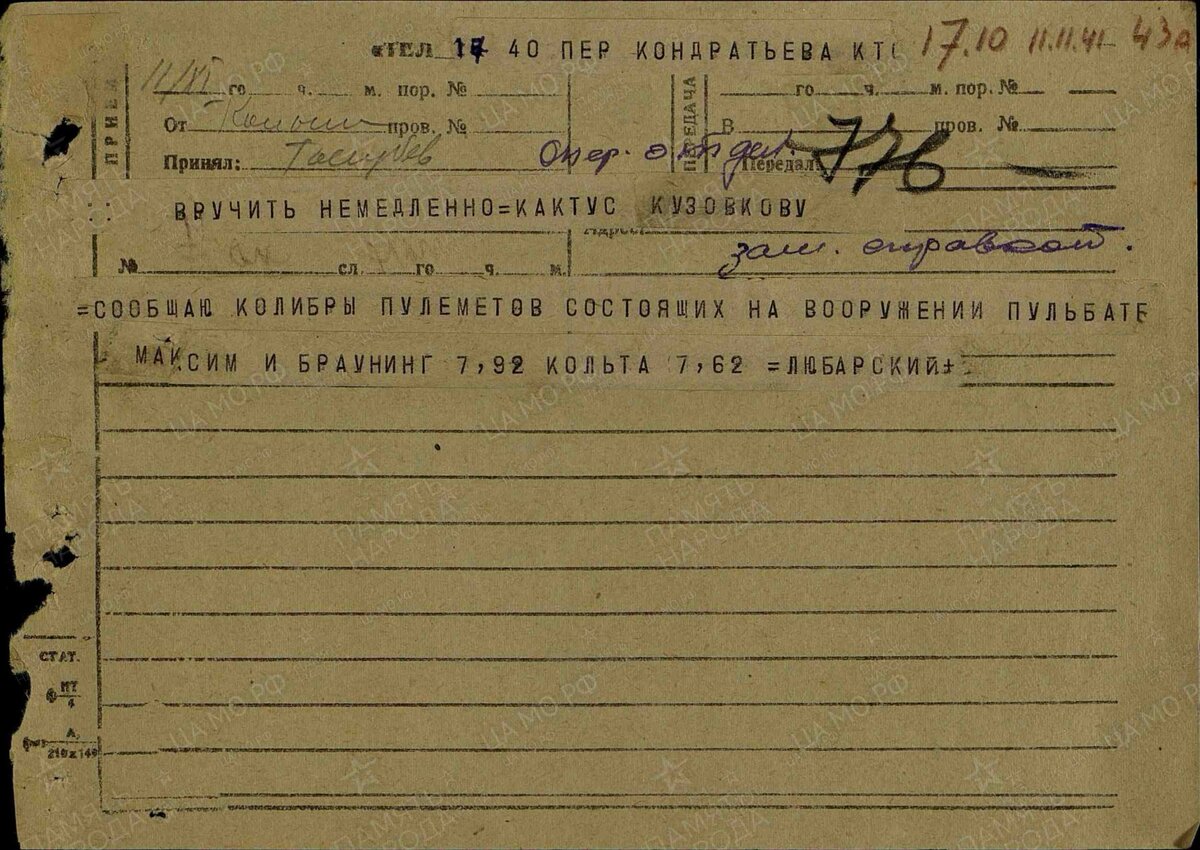 ТЕЛ 17 40 ПЕР КОНДРАТЬЕВА КТС 17.10 11.11.41 43а
ПРИЕМ
11/XI го ч. м. пор. №
От пров. №
Принял:
ПЕРЕДАЧА
го ч. м. пор. №
В пров. №
Передал:
Опер. отдел.
776
ВРУЧИТЬ НЕМЕДЛЕННО=КАКТУС КУЗОВКОВУ
Адрес:
№ сл. го ч. м.
=СООБЩАЮ КОЛИБРЫ ПУЛЕМЕТОВ СОСТОЯЩИХ НА ВООРУЖЕНИИ ПУЛЬБАТЕ
МАКСИМ И БРАУНИНГ 7,92 КОЛЬТА 7,62 =ЛЮБАРСКИЙ+
СТАТ.
А
210х149
ПАМЯТЬ НАРОДА
ЦА МО.РФ